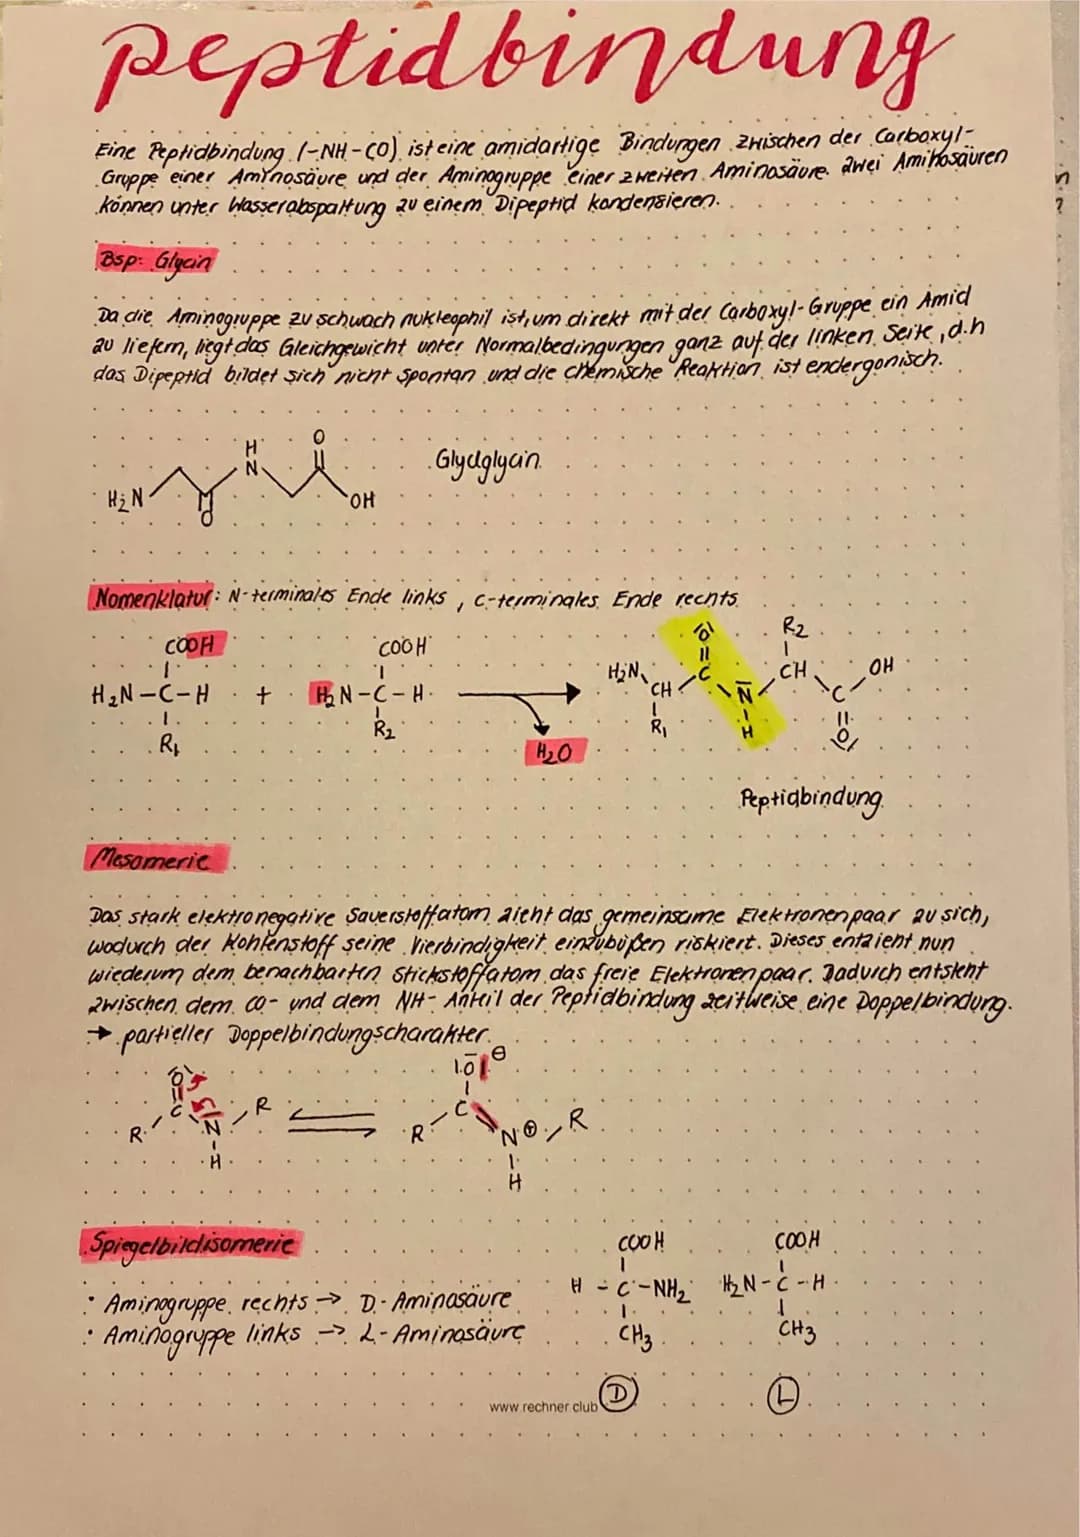 peptidbindung
Eine Peptidbindung (-NH-CO) ist eine amidartige Bindungen zwischen der Carboxyl-
Gruppe einer Aminosäure und der Aminogruppe einer zweiten Aminosäure. Zwei Aminosäuren
können unter Wasserabspaltung zu einem Dipeptid kondensieren.
Bsp: Glycin
Da die Aminogruppe zu schwach nukleophil ist, um direkt mit der Carboxyl-Gruppe ein Amid
zu liefern, liegt das Gleichgewicht unter Normalbedingungen ganz auf der linken Seite, d.h
das Dipeptid bildet sich nicht spontan und die chemische Reaktion ist endergonisch.
H O
N
Glyclglycin
H2N OH
O
Nomenklatur: N-terminales Ende links, C-terminales Ende rechts
COOH COOH O R2
H2N C CH OH
H2N-C-H + H2N-C-H CH N C
R1 R2 R1 H O
H2O
Peptidbindung
Mesomerie
Das stark elektronegative Sauerstoffatom zieht das gemeinsame Elektronenpaar zu sich,
wodurch der Kohlenstoff seine Vierbindigkeit einzubüßen riskiert. Dieses entzieht nun
wiederum dem benachbarten Stickstoffatom das freie Elektronenpaar. Dadurch entsteht
zwischen dem CO- und dem NH-Anteil der Peptidbindung zeitweise eine Doppelbindung.
→ partieller Doppelbindungscharakter
O O ⊖
C R C R
R N R N ⊕
H H
Spiegelbildisomerie
COOH COOH
H-C-NH2 H2N-C-H
: Aminogruppe rechts → D-Aminosäure
: Aminogruppe links → L-Aminosäure
CH3 CH3
D L
www.rechner.club